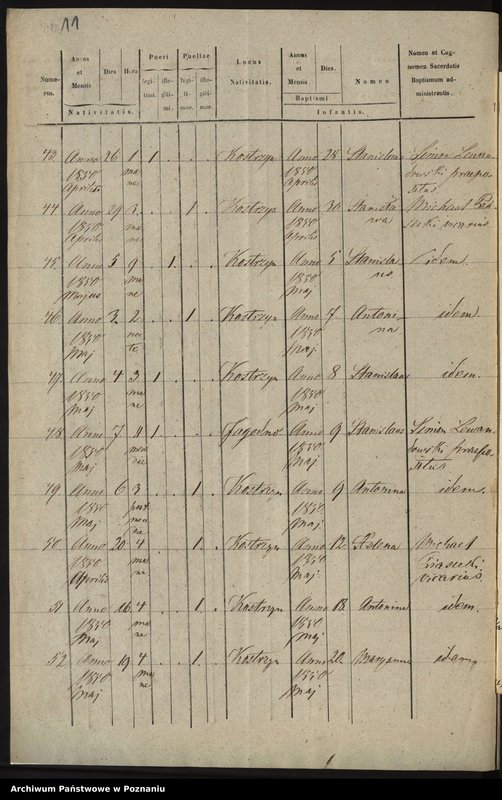 11
Numerus.
Annus et Mensis
Dies
Hora
Pueri
legitimi.
illegitimi.
Puellae
legitimae.
illegitimae.
Locus
Nativitatis.
Annus et Mensis
Dies.
Baptismi
Nomen
Nomen et Cognomen Sacerdotis Baptismum administrantis.
Nativitatis.
Infantis.
43. Anno 26 1 1 . . . Kostrzyn Anno 28 Stanislaus Simon Lewan
1850 ma 1850 dowski praepo
Aprilis ne Aprilis situs.
44 Anno 29 3 . . 1 . Kostrzyn Anno 30 Stanisła Michael Pia
1850 ma 1850 wa secki vicarius
Aprilis ne Aprilis
45. Anno 5 9 . 1 . . Kostrzyn Anno 5 Stanisla idem
1850 ma 1850 us
Majus ne Maj
46 Anno 3 2 . . 1 . Kostrzyn Anno 7 Antoni idem
1850 noc 1850 na
Maj te Maj
47. Anno 4 3 1 . . . Kostrzyn Anno 8 Stanislaus idem.
1850 ma 1850
Maj ne Maj
48 Anno 7 11 1 . . . Jagodno Anno 9 Stanislaus Simon Lewan
1850 1850 dowski praepo
Maj Maj situs
49 Anno 6 3 . . 1 . Kostrzyn Anno 9 Antonina idem
1850 post 1850
Maj meri Maj
50. Anno 20 4 . . 1 . Kostrzyn Anno 12. Helena Michael
1850 ma 1850 Piasecki
Aprilis ne Maj vicarius.
51 Anno 16 4 . . 1 . Kostrzyn Anno 18. Antonina idem.
1850 ma 1850
Maj ne Maj
52 Anno 19 4 . . 1 . Kostrzyn Anno 20. Maryanna idem
1850 ma 1850
Maj ne Maj
Archiwum Państwowe w Poznaniu